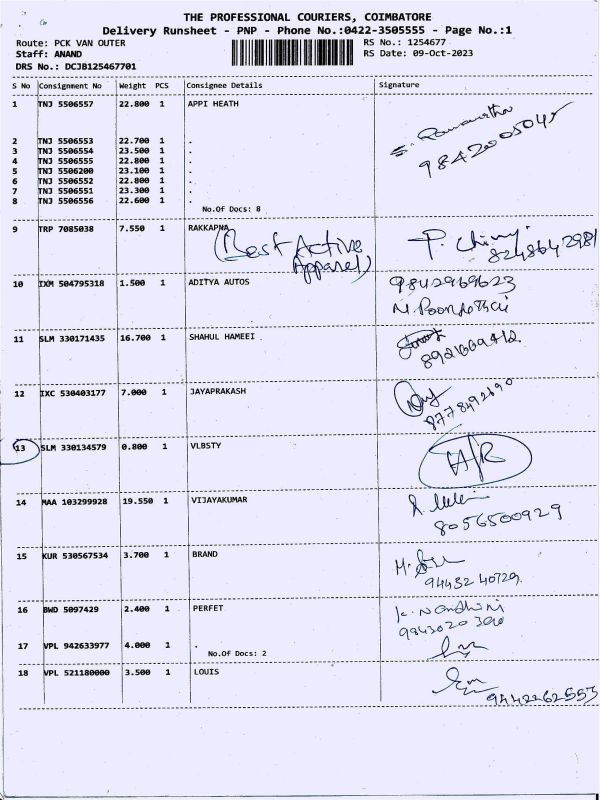 THE PROFESSIONAL COURIERS, COIMBATORE
Delivery Runsheet - PNP - Phone No.:0422-3505555 - Page No.:1
Route: PCK VAN OUTER
RS No.: 1254677
Staff: ANAND
RS Date: 09-Oct-2023
DRS No.: DCJB125467701
S No Consignment No Weight PCS Consignee Details Signature
1 TNJ 5506557 22.800 1 APPI HEATH
2 TNJ 5506553 22.700 1 .
3 TNJ 5506554 23.500 1 .
4 TNJ 5506555 22.800 1 .
5 TNJ 5506200 23.100 1 .
6 TNJ 5506552 22.800 1 .
7 TNJ 5506551 23.300 1 .
8 TNJ 5506556 22.600 1 .
9842005045
No.Of Docs: 8
9 TRP 7085038 7.550 1 RAKKAPNA
(Best Active
Apparel)
8248642981
10 IXM 504795318 1.500 1 ADITYA AUTOS
9842969623
11 SLM 330171435 16.700 1 SHAHUL HAMEEI
12 IXC 530403177 7.000 1 JAYAPRAKASH
13 SLM 330134579 0.800 1 VLBSTY
14 MAA 103299928 19.550 1 VIJAYAKUMAR
8056500929
15 KUR 530567534 3.700 1 BRAND
9443240729
16 BWD 5097429 2.400 1 PERFET
K. Nandhini
17 VPL 942633977 4.000 1 .
No.Of Docs: 2
18 VPL 521180000 3.500 1 LOUIS
9442262553